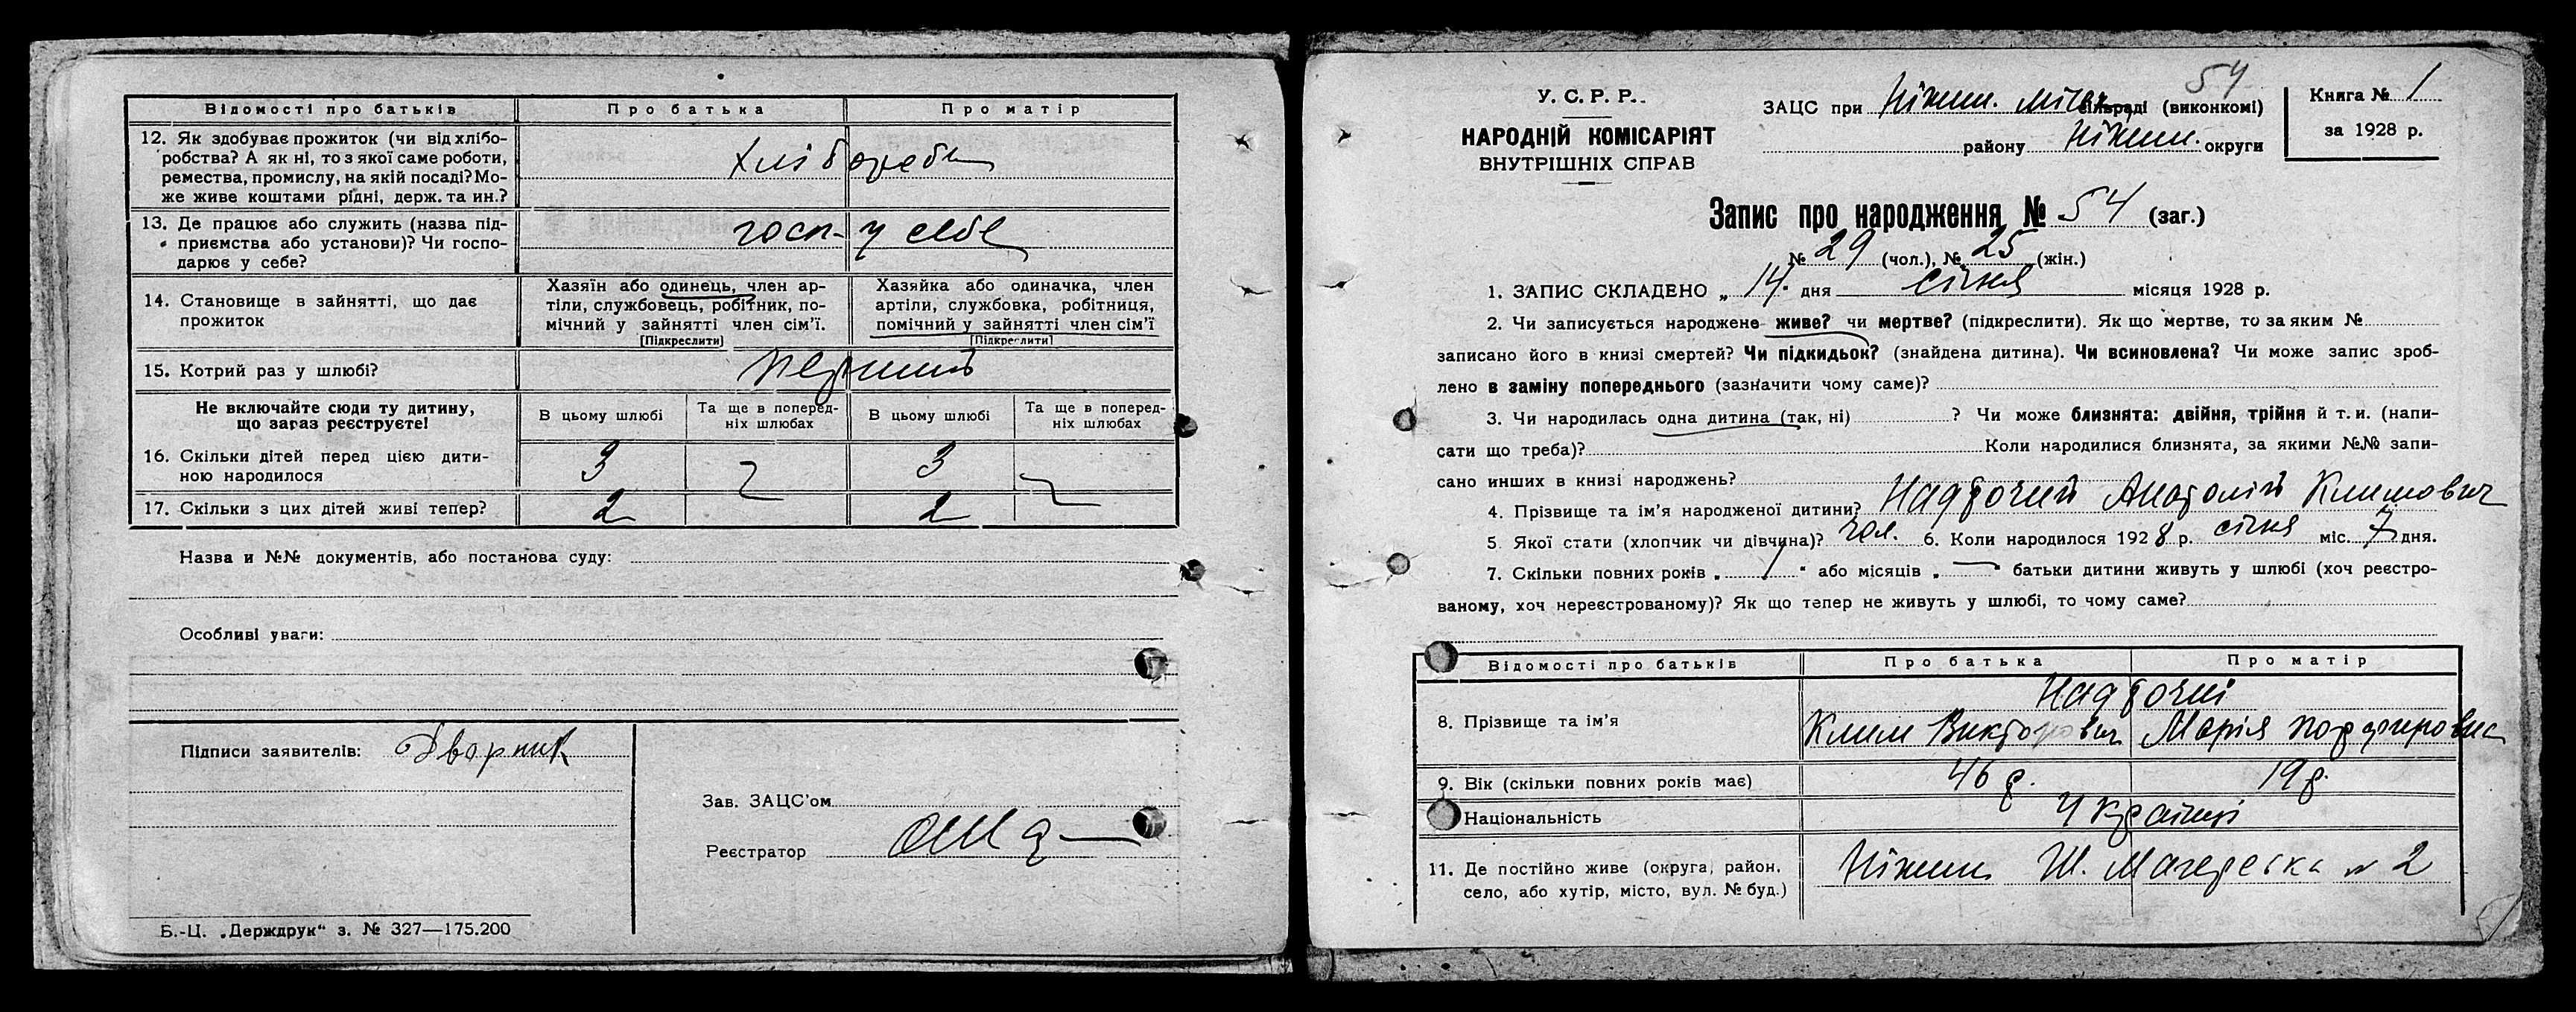 Відомості про батьків Про батька Про матір
12. Як здобуває прожиток (чи від хлібо-
робства? А як ні, то з якої саме роботи,
ремества, промислу, на якій посаді? Мо-
же живе коштами рідні, держ. та ин.?
хлібороби
13. Де працює або служить (назва під-
приємства або установи)? Чи госпо-
дарює у себе?
госп- у себе
14. Становище в зайнятті, що дає
прожиток
Хазяїн або одинець, член ар-
тіли, службовець, робітник, по-
мічний у зайнятті член сім'ї.
[Підкреслити]
Хазяйка або одиначка, член
артіли, службовка, робітниця,
помічний у зайнятті член сім'ї
[Підкреслити]
15. Котрий раз у шлюбі? перший
Не включайте сюди ту дитину,
що зараз реєструєте!
В цьому шлюбі Та ще в поперед-
ніх шлюбах В цьому шлюбі Та ще в поперед-
ніх шлюбах
16. Скільки дітей перед цією дити-
ною народилося 3 3
17. Скільки з цих дітей живі тепер? 2 2
Назва и №№ документів, або постанова суду:
Особливі уваги:
Підписи заявителів: Дворник
Зав. ЗАЦС'ом
Реєстратор
Б.-Ц. „Держдрук" з. № 327—175.200
54
У. С. Р. Р.
НАРОДНІЙ КОМІСАРІЯТ
ВНУТРІШНІХ СПРАВ
ЗАЦС при Ніжин. міськ сільраді (виконкомі)
району Ніжин. округи
Книга № 1
за 1928 р.
Запис про народження № 54 (заг.)
№ 29 (чол.), № 25 (жін.)
1. ЗАПИС СКЛАДЕНО „ 14. дня січня місяця 1928 р.
2. Чи записується народжене живе? чи мертве? (підкреслити). Як що мертве, то за яким №
записано його в книзі смертей? Чи підкидьок? (знайдена дитина). Чи всиновлена? Чи може запис зроб-
лено в заміну попереднього (зазначити чому саме)?
3. Чи народилась одна дитина (так, ні) ? Чи може близнята: двійня, трійня й т. и. (напи-
сати що треба)? Коли народилися близнята, за якими №№ запи-
сано инших в книзі народжень?
4. Прізвище та ім'я народженої дитини? Надточий Анатолій Климович
5. Якої стати (хлопчик чи дівчина)? чол. 6. Коли народилося 1928 р. січня міс. 7 дня.
7. Скільки повних років „ 1 " або місяців „ — " батьки дитини живуть у шлюбі (хоч реєстро-
ваному, хоч нереєстрованому)? Як що тепер не живуть у шлюбі, то чому саме?
Відомості про батьків Про батька Про матір
Надточиі
8. Прізвище та ім'я Клим Викторович Марія Порфировна
9. Вік (скільки повних років має) 46 р. 19 р.
Національність Україн̄ці
11. Де постійно живе (округа, район,
село, або хутір, місто, вул. № буд.)
Ніжин Ш. Магерська № 2